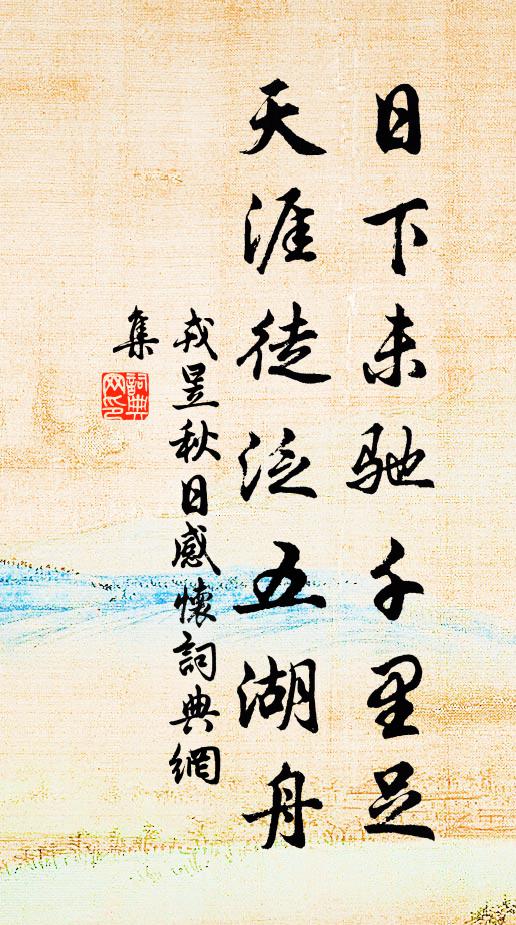 日下未驰千里足
天涯徒泛五湖舟
戎昱秋日感懷詞典網
集
詞典
网印